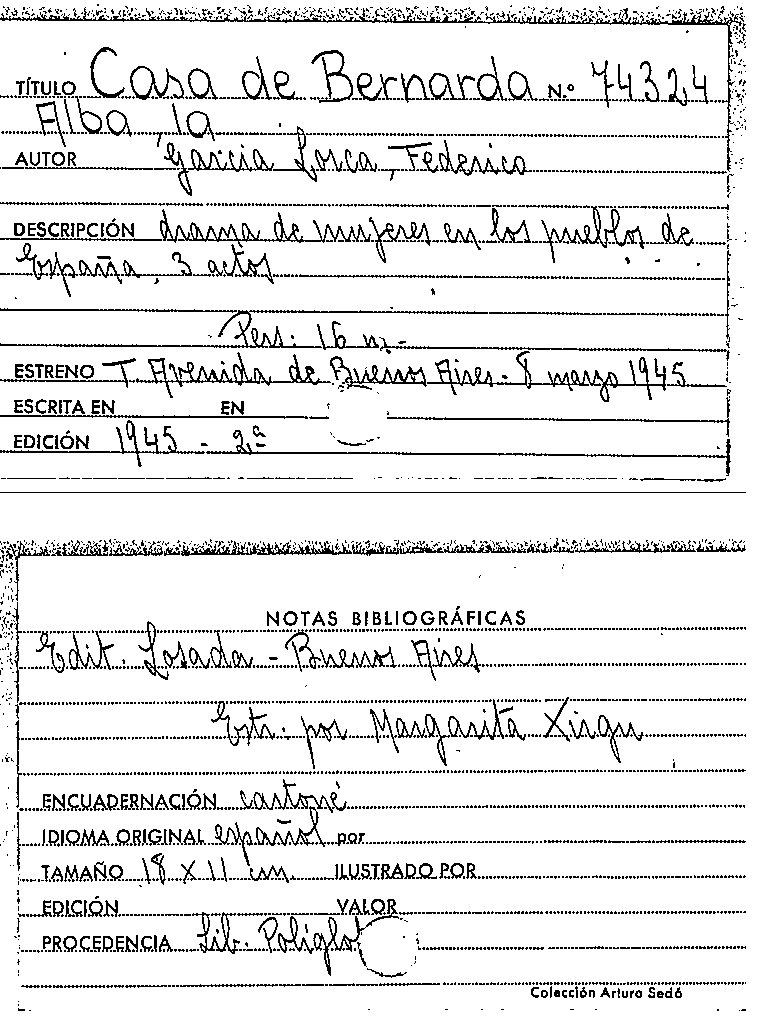 TÍTULO Casa de Bernarda N.º 74324
Alba, la
AUTOR García Lorca, Federico
DESCRIPCIÓN drama de mujeres en los pueblos de
España, 3 actos
Pers: 16 m.-
ESTRENO T. Avenida de Buenos Aires - 8 marzo 1945
ESCRITA EN EN
EDICIÓN 1945 - 2ª
NOTAS BIBLIOGRÁFICAS
Edit. Losada - Buenos Aires
Estr. por Margarita Xirgu
ENCUADERNACIÓN cartoné
IDIOMA ORIGINAL español por
TAMAÑO 18 X 11 cm. ILUSTRADO POR
EDICIÓN VALOR
PROCEDENCIA Lib. Poliglot
Colección Arturo Sedó